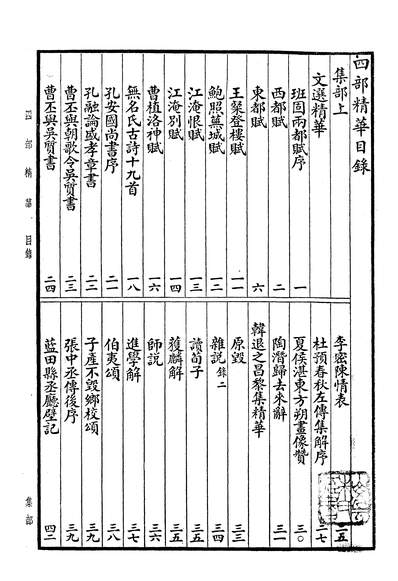 四部精華目錄
集部上
文選精華
班固兩都賦序 一
西都賦 二
東都賦 六
王粲登樓賦 一一
鮑照蕪城賦 一二
江淹恨賦 一三
江淹別賦 一四
曹植洛神賦 一六
無名氏古詩十九首 一八
孔安國尚書序 二一
孔融論盛孝章書 二二
曹丕與朝歌令吳質書 二三
曹丕與吳質書 二四
李密陳情表 二五
杜預春秋左傳集解序 二七
夏侯湛東方朔畫像贊 三〇
陶潛歸去來辭 三一
韓退之昌黎集精華
原毀 三三
雜說 錄二 三四
讀荀子 三五
獲麟解 三五
師說 三六
進學解 三七
伯夷頌 三八
子產不毀鄉校頌 三九
張中丞傳後序 三九
藍田縣丞廳壁記 四二
四部精華 目錄
集部